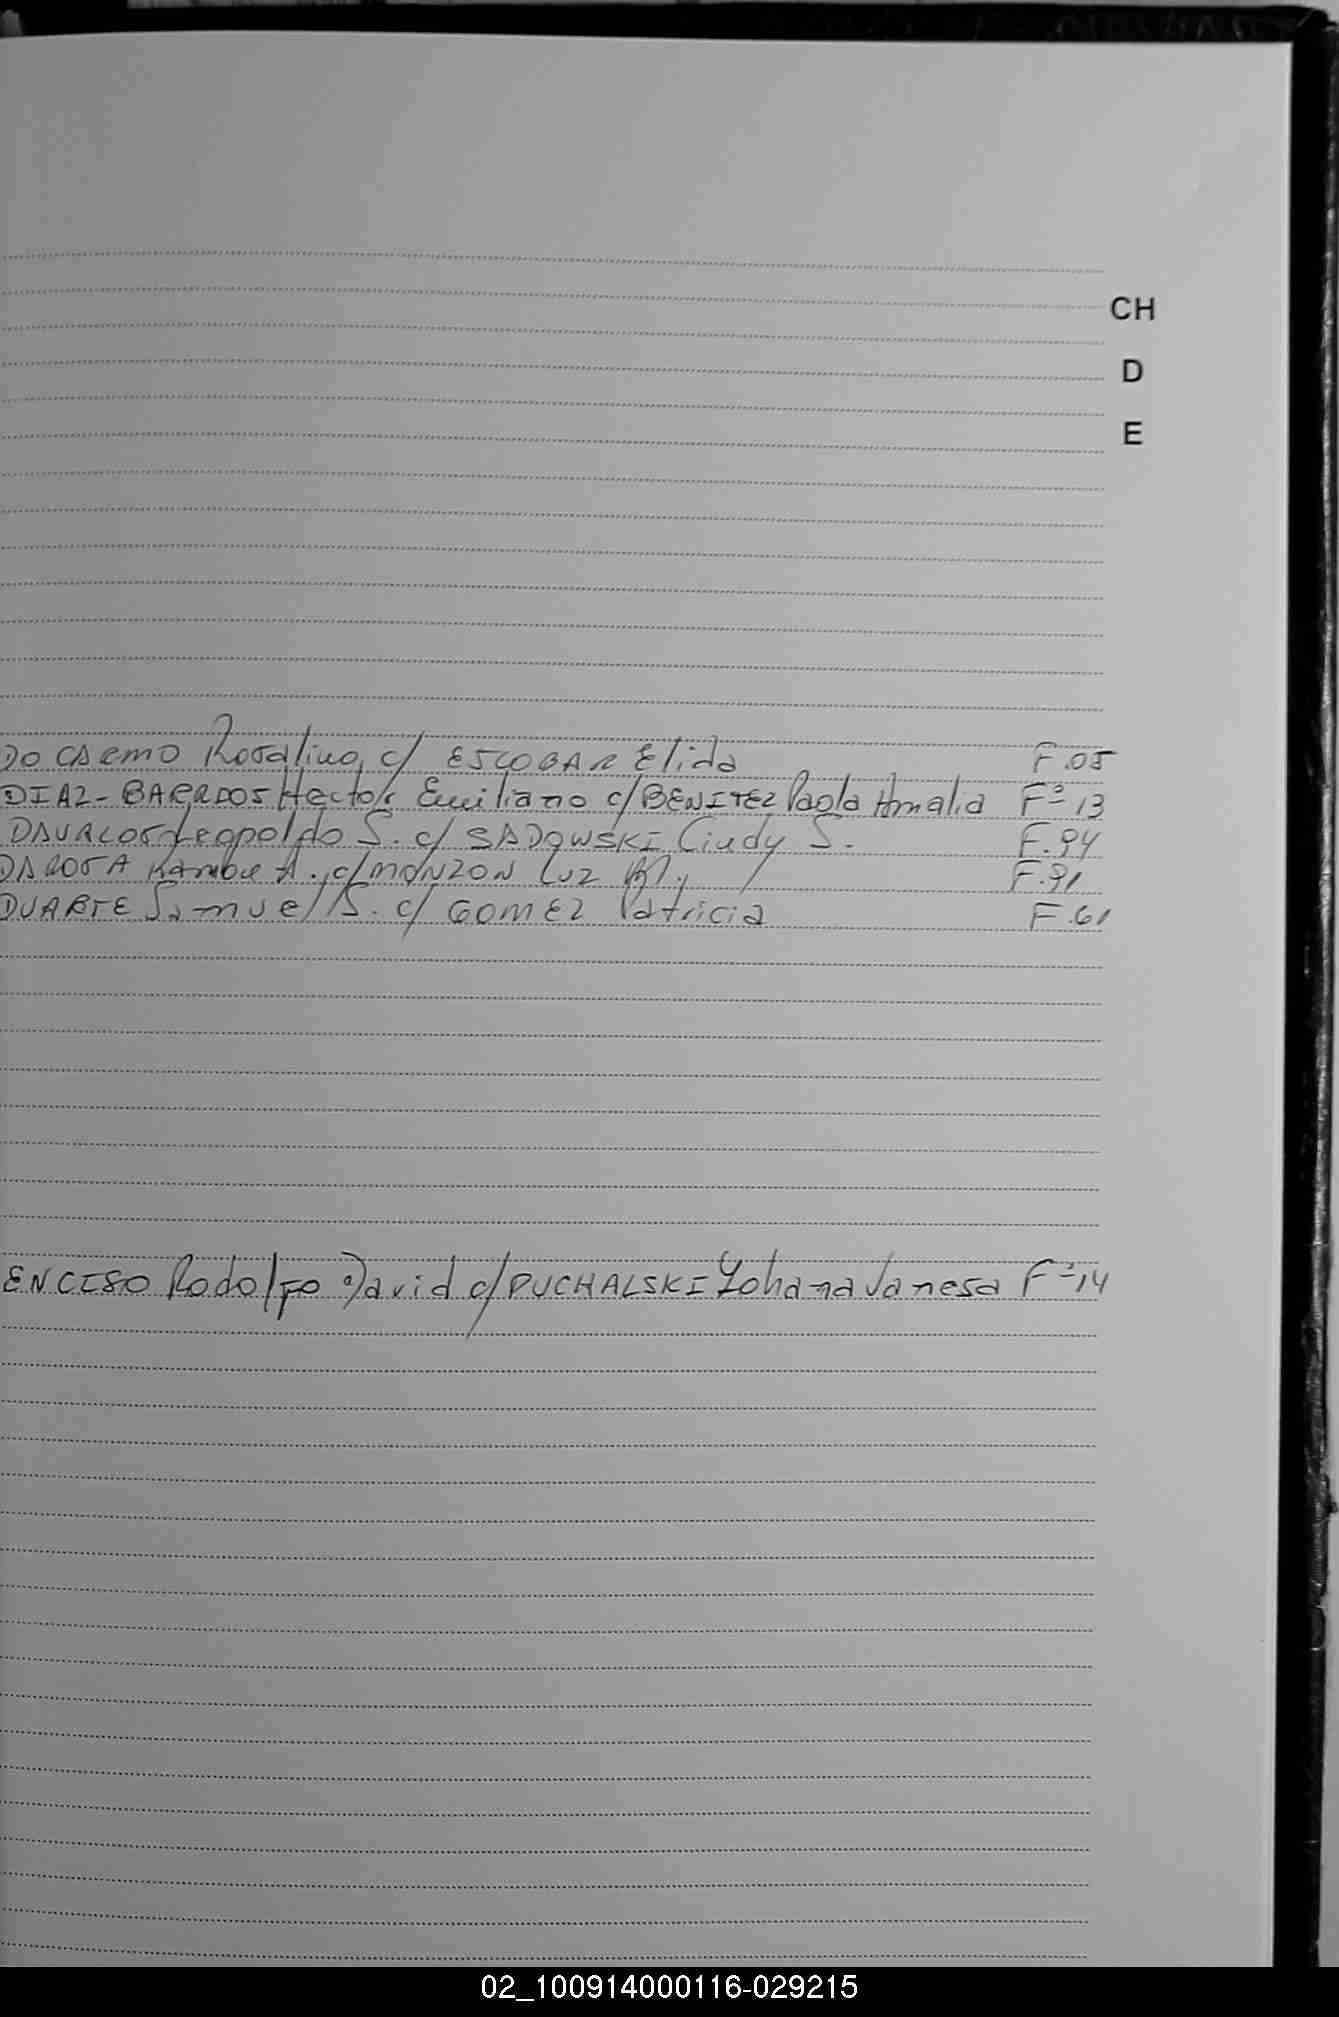 CH
D
E
DO CARMO Rosalino c/ ESCOBAR Elida F.05
DIAZ-BARRDOS Hector Emiliano c/ BENITEZ Paola Amalia Fº 13
DAVALOS Leopoldo S. c/ SADOWSKI Cindy S. F.94
DAROSA A. c/ MONZON Luz M. F.91
DUARTE Samuel S. c/ GOMEZ Patricia F.61
ENCISO Rodolfo David c/ PUCHALSKI Yohana Vanesa Fº 14
02_100914000116-029215